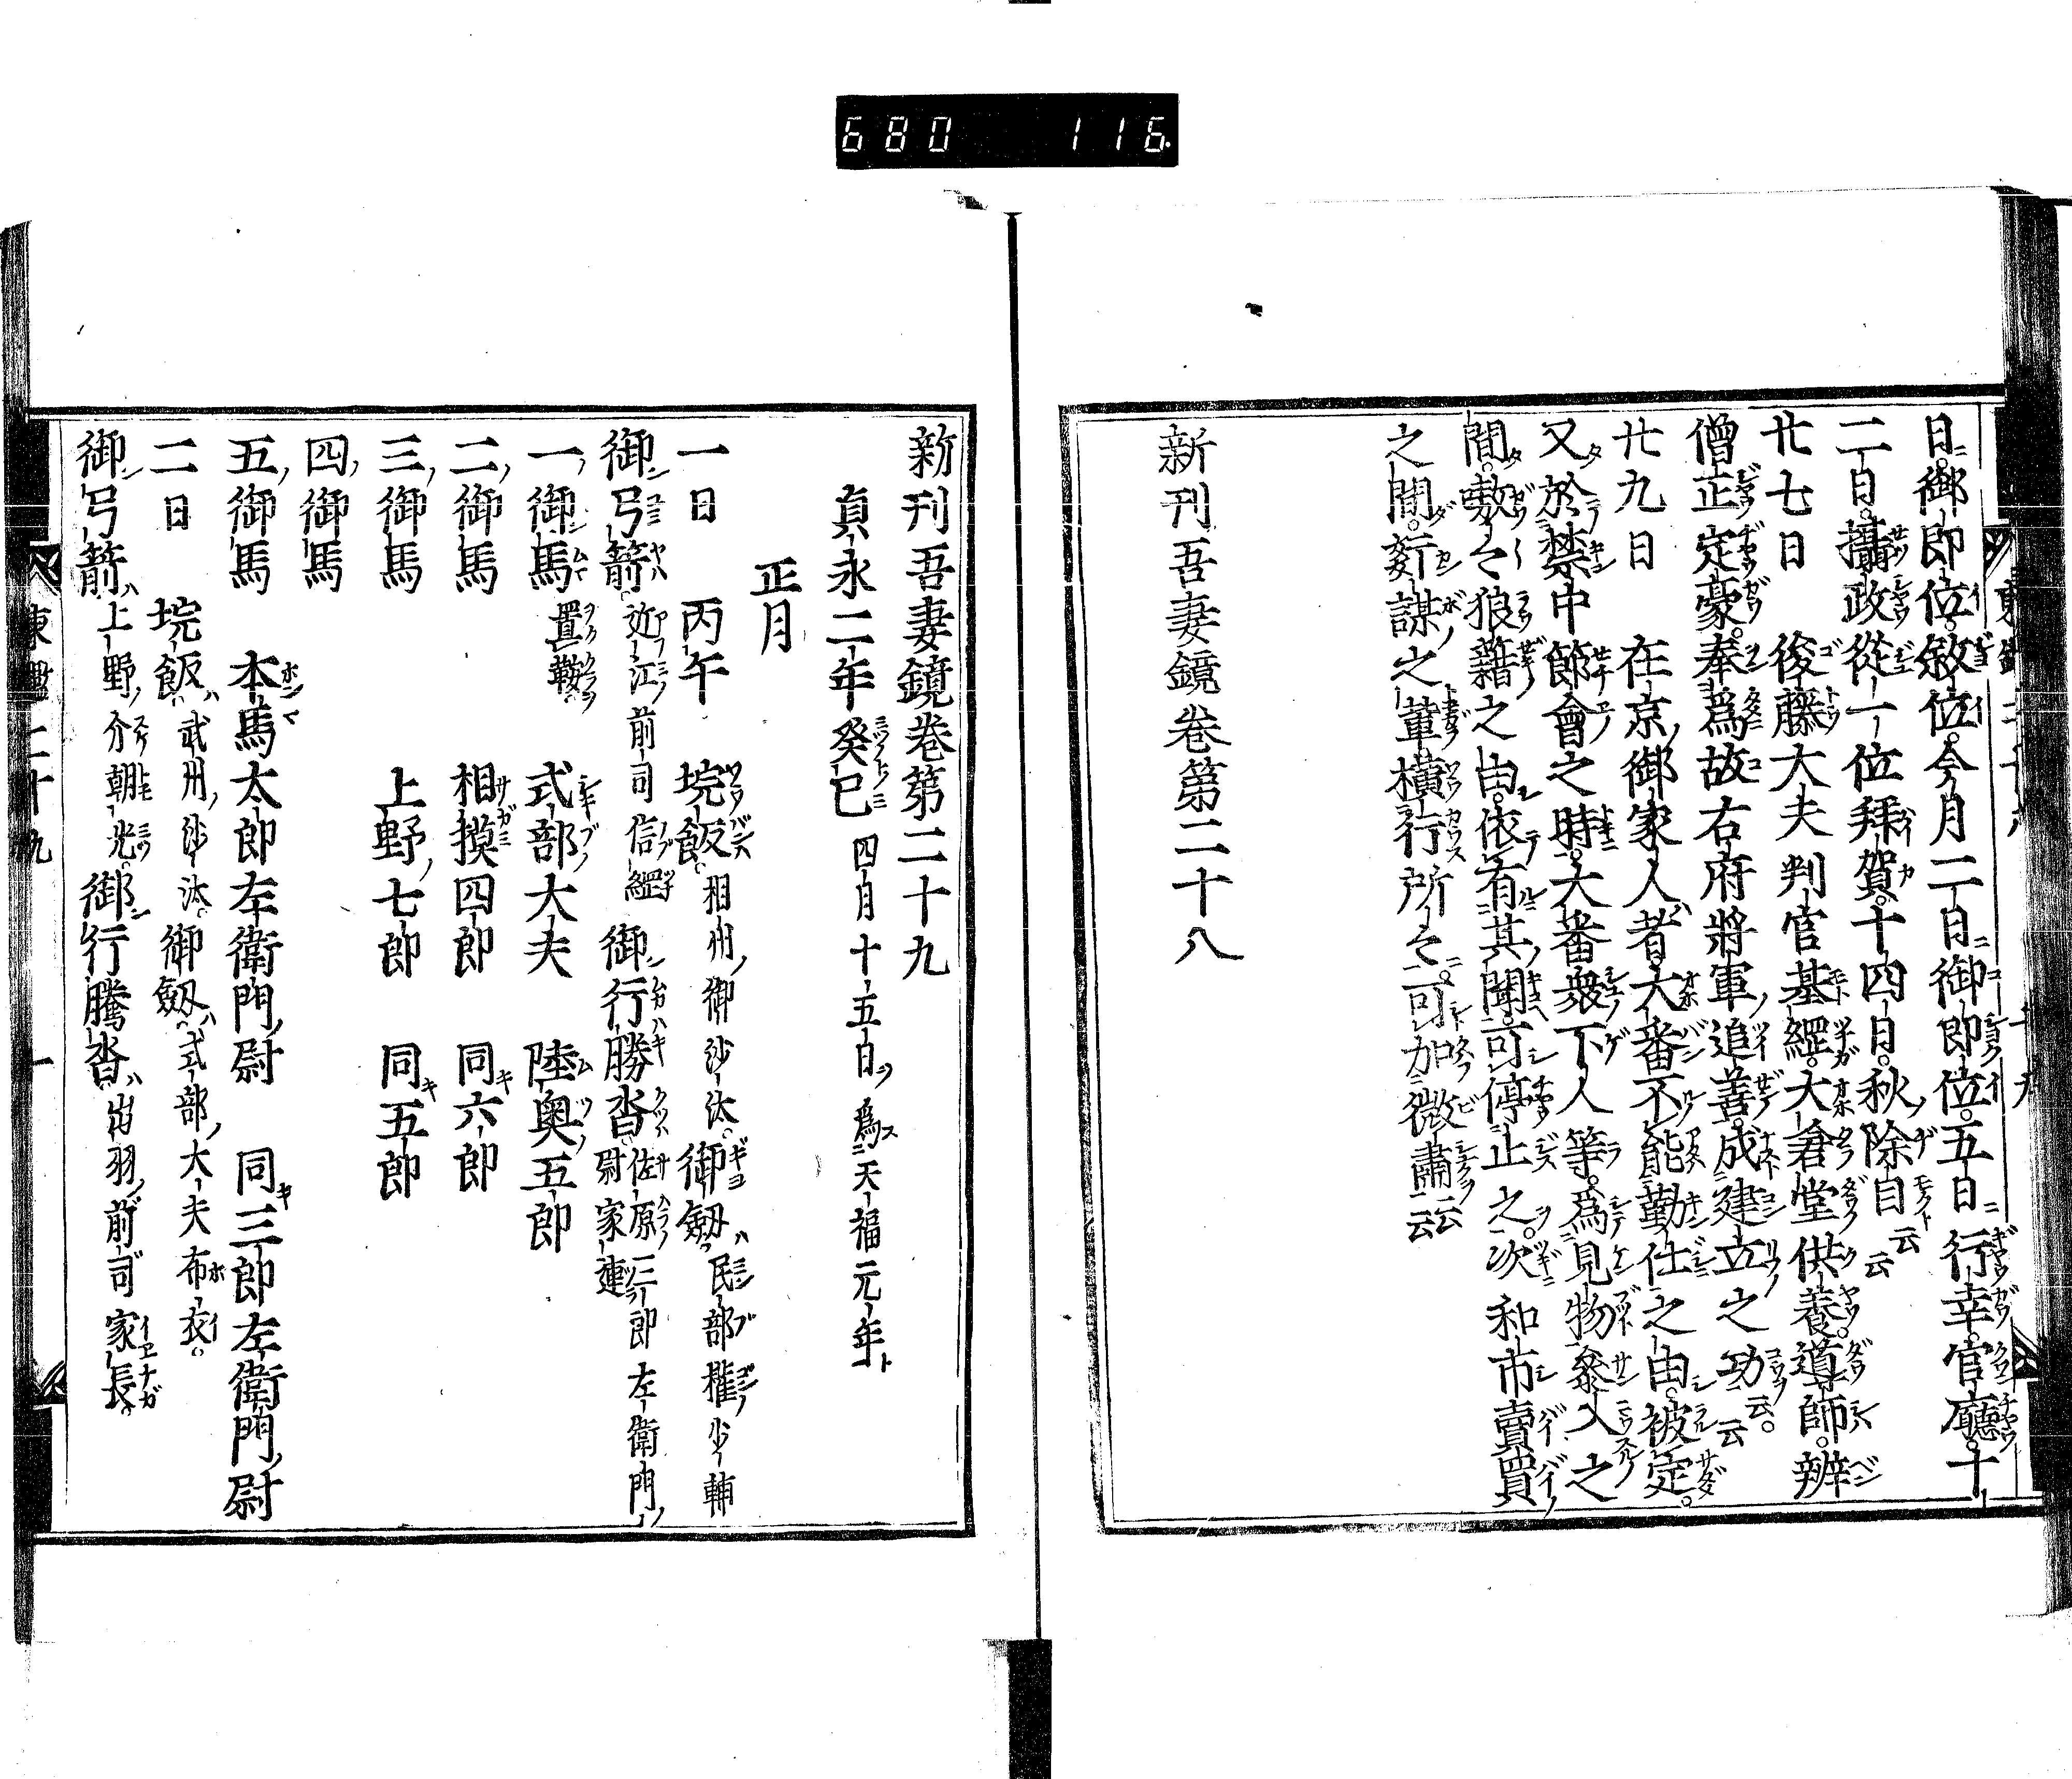 680 116
日御即位敘位今月二日御即位五日行幸官廳十
二日攝政從一位拜賀十四日秋除目云云
廿七日 後藤大夫判官基綱大倉堂供養導師辨
僧正定豪奉爲故右府將軍追善成建立之功云云
廿九日 在京御家人者大番不能勤仕之由被定
又於禁中節會之時大番衆下人等爲見物參入之
間敷々狼藉之由依有其聞可停止之次和市賣買
之間姧謀之輩横行所々可加徴肅云云
新刊吾妻鏡卷第二十八
新刊吾妻鏡卷第二十九
貞永二年癸巳四月十五日爲天福元年
正月
一日 丙午 埦飯相州御沙汰御劔民部權少輔
御弓箭近江前司信綱 御行騰沓佐原三郎左衛門尉家連
一御馬置鞍 式部大夫 陸奥五郎
二御馬 相摸四郎 同六郎
三御馬 上野七郎 同五郎
四御馬
五御馬 本馬太郎左衛門尉 同三郎左衛門尉
二日 埦飯武州沙汰御劔式部大夫布衣
御弓箭上野介朝光御行騰沓出羽前司家長
東鑑二十九 一